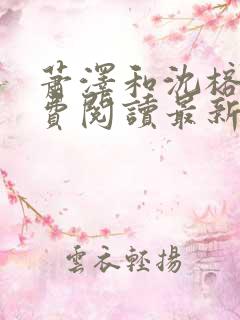 蕭澤和沈榕
費閱讀最新
雲衣輕揚